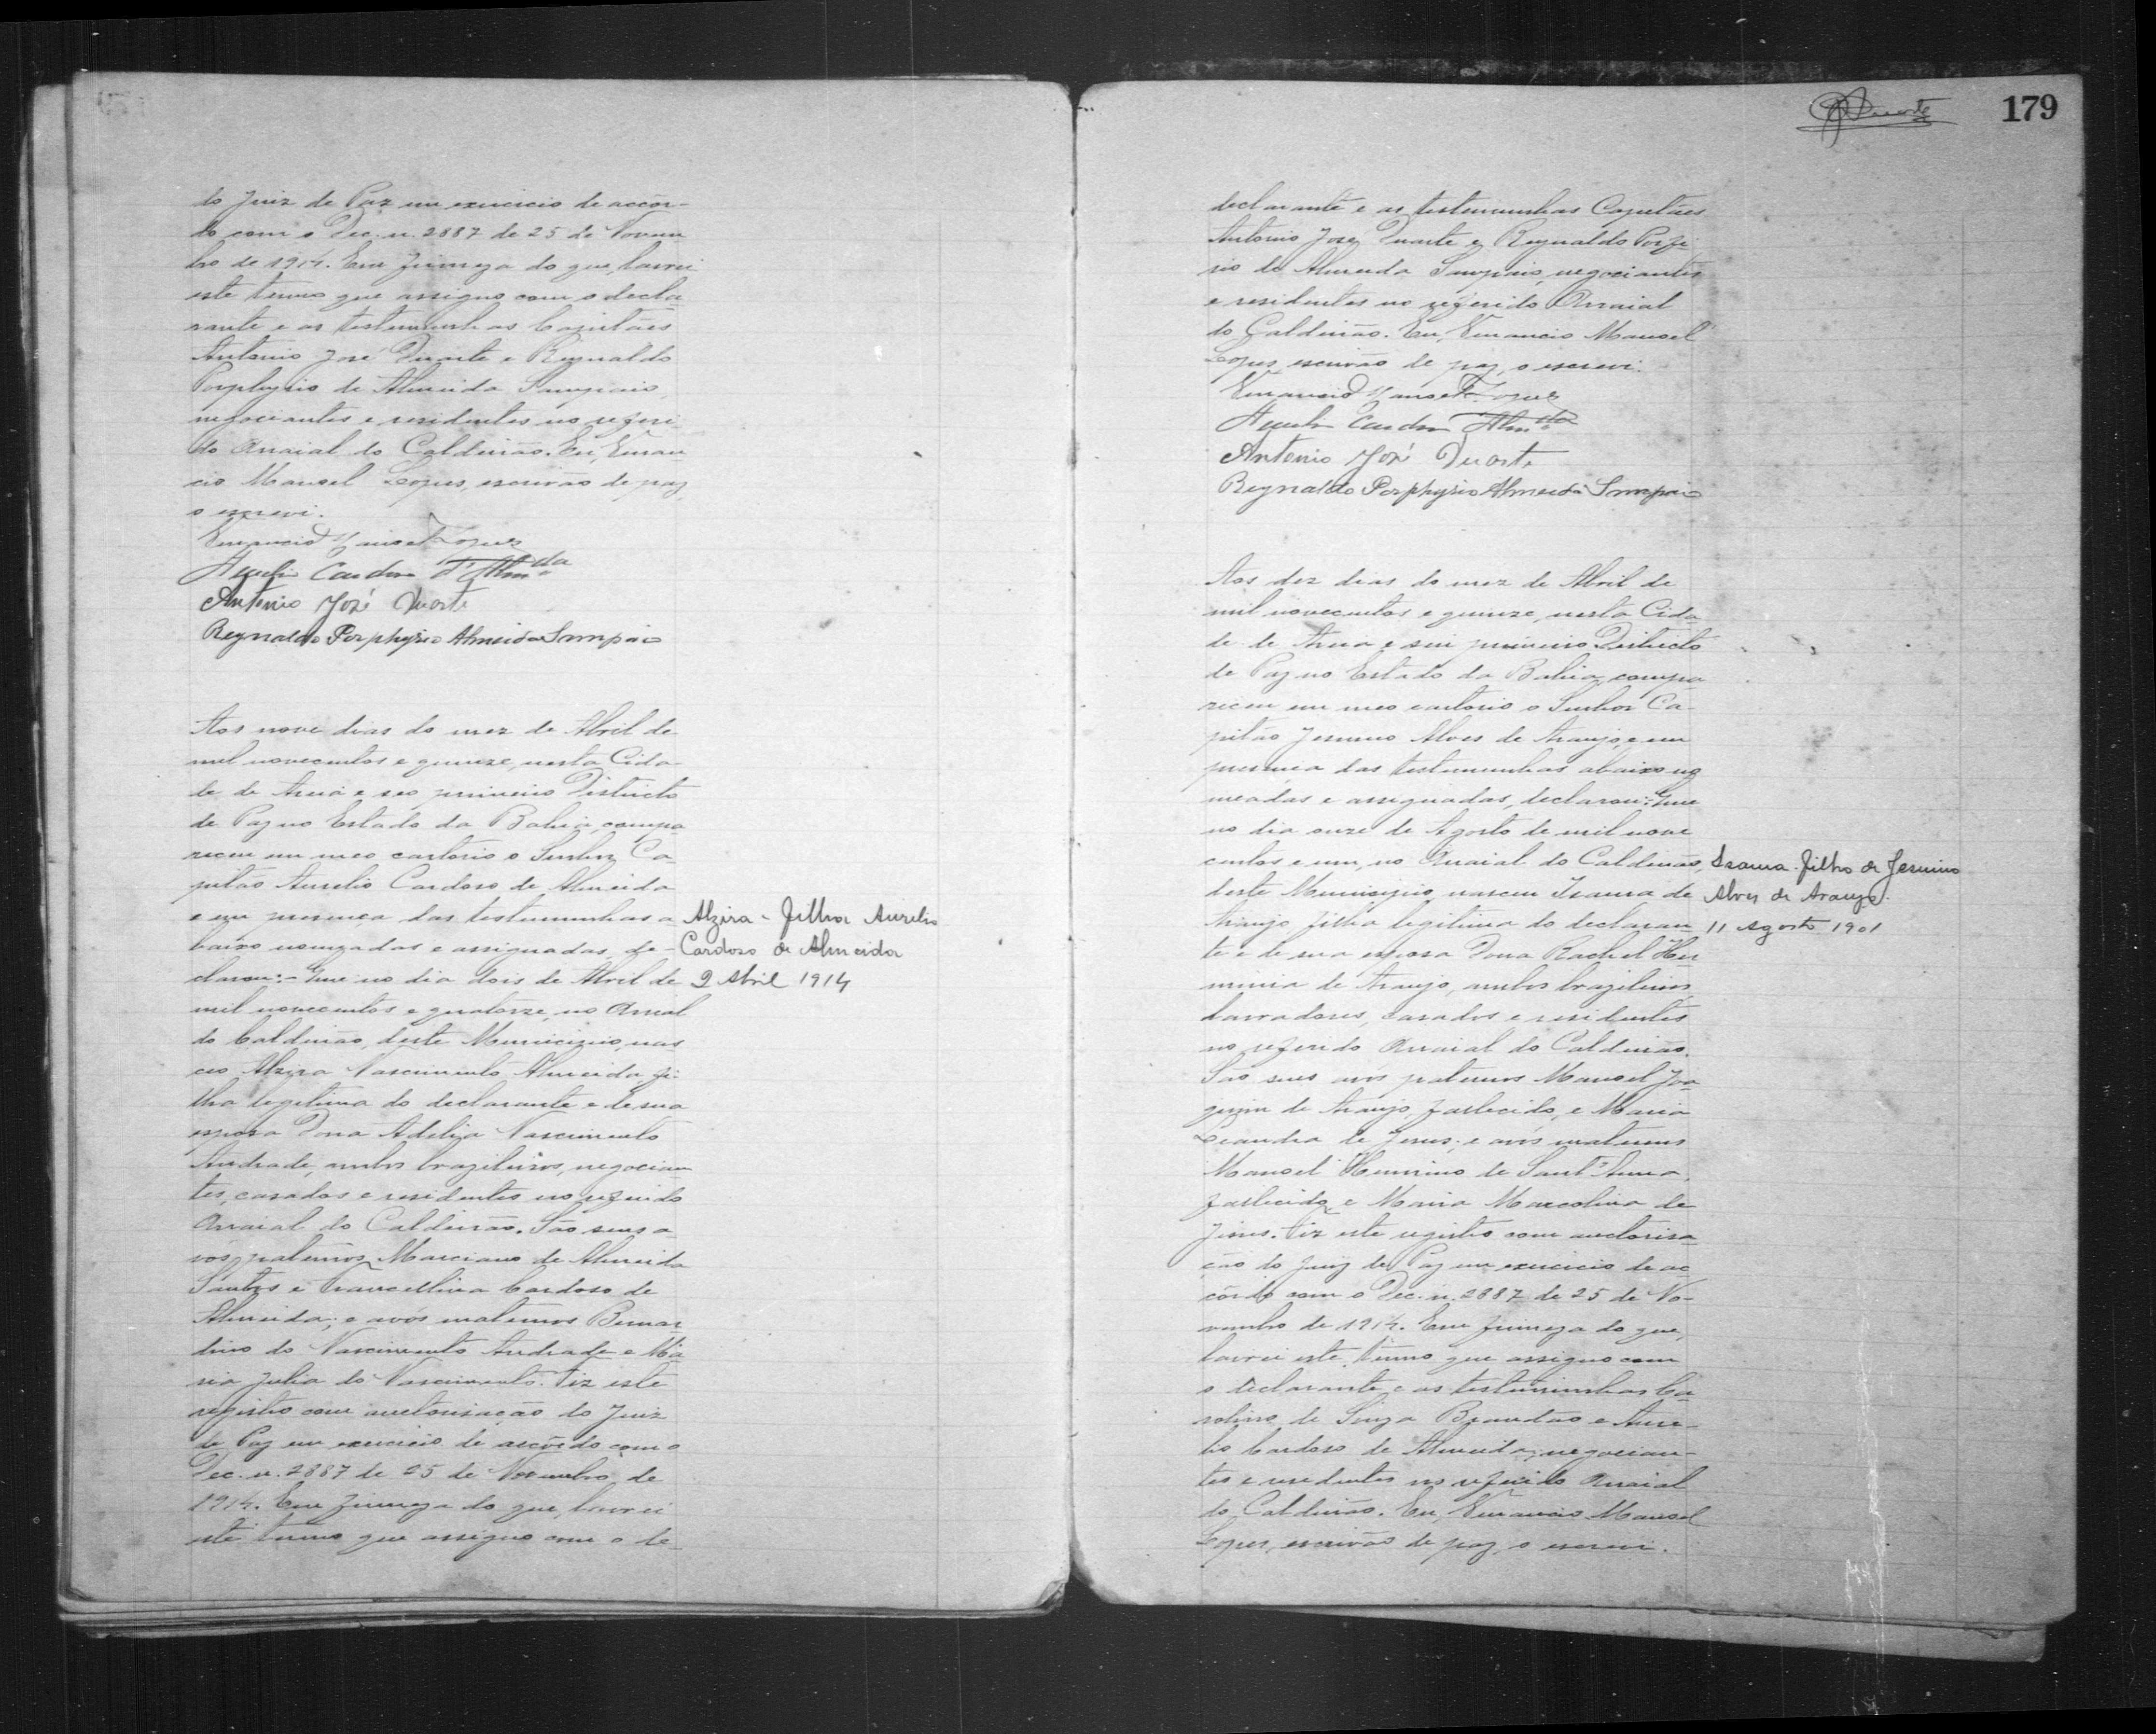 do Juiz de Paz em exercicio de accor-
do com o Dec. n. 2887 de 25 de Novem
bro de 1914. Em firmeza do que, lavrei
este termo que assigno com o decla
rante e as testemunhas Capitães
Antonio José Duarte e Reynaldo
Porphyrio de Almeida Sampaio,
negociantes e residentes no referi
do Arraial do Caldeirão. Eu, Venan
cio Manoel Lopes, escrivão de paz,
o escrevi.
Venancio Manoel Lopes
Aurelio Cardoso d'Almda
Antonio José Duarte
Reynaldo Porphyrio Almeida Sampaio
Aos nove dias do mez de Abril de
mil novecentos e quinze, nesta Cida-
de de Areia e seo primeiro Districto
de Paz no Estado da Bahia, compa
receu em meo cartorio o Senhor Ca
pitão Aurelio Cardoso de Almeida
e em presença das testemunhas a
baixo nomeadas e assignadas, de-
clarou:- Que no dia dois de Abril de
mil novecentos e quatorze, no Arraial
do Caldeirão, deste Municipio, nas
ceo Alzira Nascimento Almeida, fi
lha legitima do declarante e de sua
esposa Dona Adeliza Nascimento
Andrade, ambos brazileiros, negocian
tes, casados e residentes no referido
Arraial do Caldeirão. São seus a
vós paternos Marciano de Almeida
Santos e Francellina Cardoso de
Almeida; e avós maternos Bernar
dino do Nascimento Andrade e Ma
ria Julia do Nascimento. Fiz este
registro com auctorisação do Juiz
de Paz em exercicio de accôrdo com o
Dec. n. 2887 de 25 de Novembro de
1914. Em firmeza do que, lavrei
este termo que assigno com o de
Alzira - Filha Aurelio
Cardoso de Almeida
2 Abril 1914
179
Duarte
declarante e as testemunhas Capitães
Antonio José Duarte e Reynaldo Porfi
rio de Almeida Sampaio, negociantes
e residentes no referido Arraial
do Caldeirão. Eu, Venancio Manoel
Lopes, escrivão de paz, o escrevi.
Venancio Manoel Lopes
Aurelio Cardoso d'Almda
Antonio José Duarte
Reynaldo Porphyrio Almeida Sampaio
Aos dez dias do mez de Abril de
mil novecentos e quinze, nesta Cida
de de Areia e seu primeiro Districto
de Paz no Estado da Bahia, compa
receu em meo cartorio o Senhor Ca-
pitão Jesuino Alves de Araujo, e em
presença das testemunhas abaixo no
meadas e assignadas, declarou: Que
no dia onze de Agosto de mil nove
centos e um, no Arraial do Caldeirão,
deste Municipio, nasceu Isaura de
Araujo filha legitima do declaran
te e de sua esposa Dona Rachel Her
minia de Araujo, ambos brazileiros,
lavradores, casados e residentes
no referido Arraial do Caldeirão.
São seus avós paternos Manoel Joa
quim de Araujo, fallecido, e Maria
Leandra de Jesus; e avós maternos
Manoel Hermino de Sant'Anna,
fallecido, e Maria Marcolina de
Jesus. Fiz este registro com auctorisa
ção do Juiz de Paz em exercicio de ac
côrdo com o Dec. n. 2887 de 25 de No-
vembro de 1914. Em firmeza do que,
lavrei este termo que assigno com
o declarante e as testemunhas Ca
rolino de Souza Brandão e Aure-
lio Cardoso de Almeida, negocian-
tes e residentes no referido Arraial
do Caldeirão. Eu, Venancio Manoel
Lopes, escrivão de paz, o escrevi.
Isaura. Filha de Jesuino
Alves de Araujo.
11 Agosto 1901